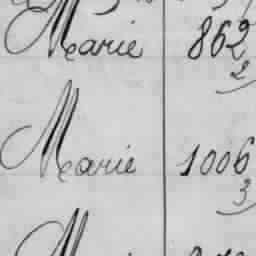 Marie 862
2
Marie 1006
3